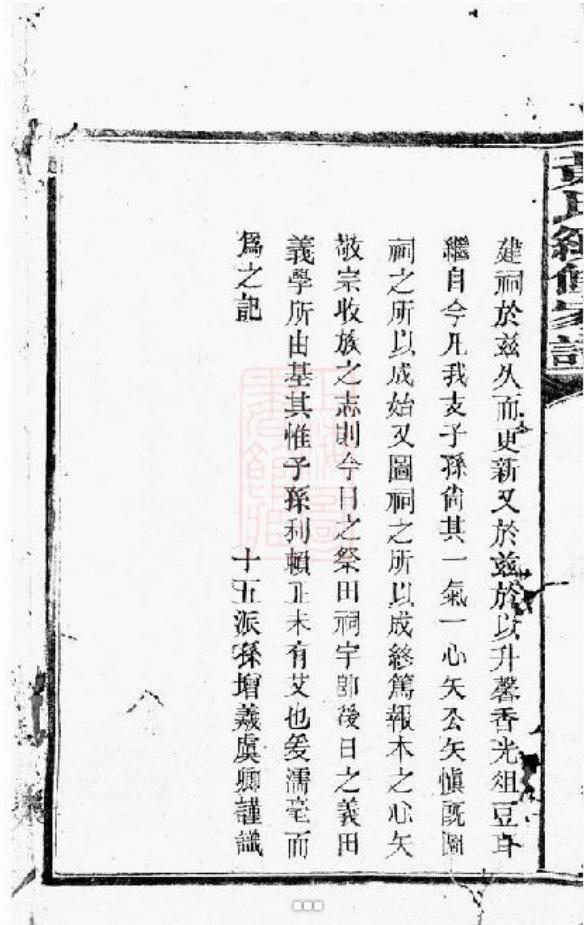 黃氏續修家譜
建祠於茲久而更新又於茲於以升馨香光俎豆身
繼自今凡我支子孫尙其一氣一心矢公矢愼旣圖
祠之所以成始又圖祠之所以成終篤報本之心矢
敬宗收族之志則今日之祭田祠宇卽後日之義田
義學所由基其惟子孫利賴正未有艾也爰濡毫而
爲之記
十五派孫增羲虞卿謹識